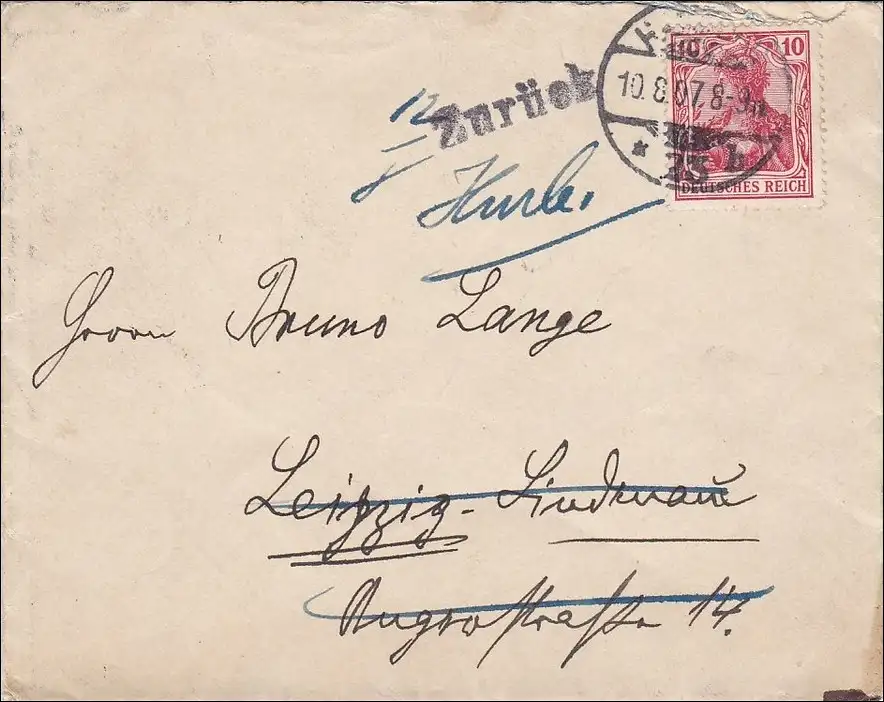 10
10.8.07. 8-9
* 23 b
DEUTSCHES REICH
Zurück
12
Herrn Bruno Lange
Leipzig-Lindenau
Angerstraße 14.